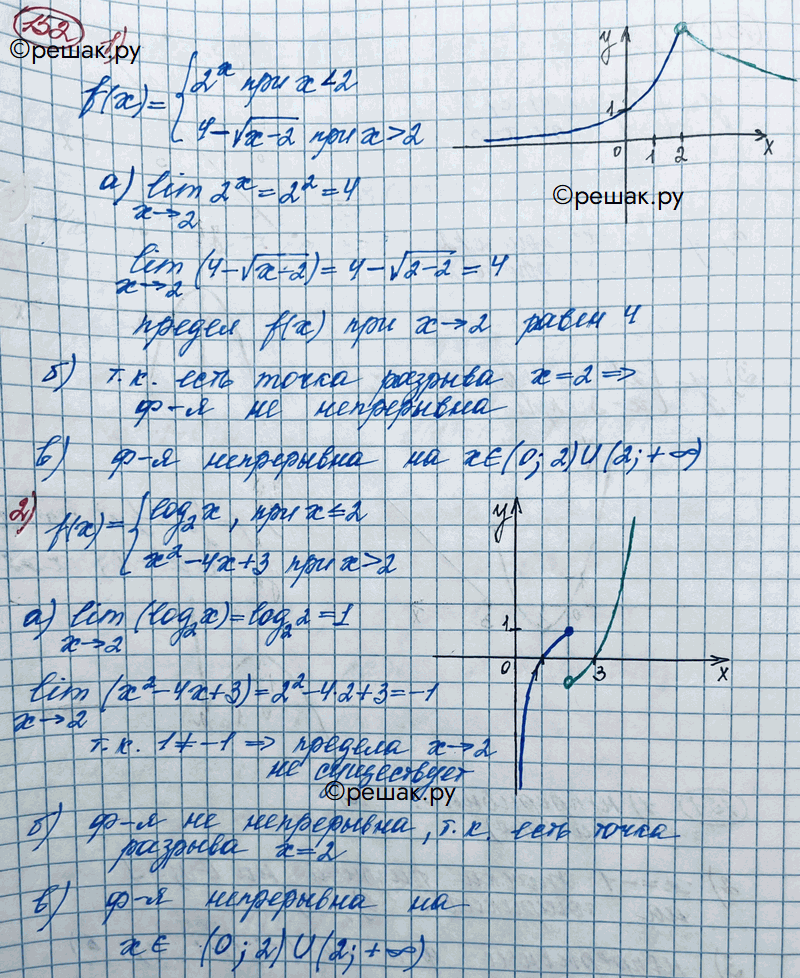 152
©решак.ру
1)
f(x) = { 2ˣ при x < 2
4 - √(x-2) при x > 2
y
1
0 1 2 x
©решак.ру
а) lim 2ˣ = 2² = 4
x→2
lim (4 - √(x-2)) = 4 - √(2-2) = 4
x→2
предел f(x) при x→2 равен 4
б) т.к. есть точка разрыва x=2 =>
ф-я не непрерывна
в) ф-я непрерывна на x∈(0; 2)∪(2; +∞)
2) f(x) = { log₂x, при x ≤ 2
x² - 4x + 3 при x > 2
y
1
0 1 3 x
а) lim (log₂x) = log₂2 = 1
x→2
lim (x² - 4x + 3) = 2² - 4·2 + 3 = -1
x→2
т.к. 1 ≠ -1 => предела x→2
не существует
©решак.ру
б) ф-я не непрерывна, т.к. есть точка
разрыва x=2
в) ф-я непрерывна на
x∈ (0; 2)∪(2; +∞)